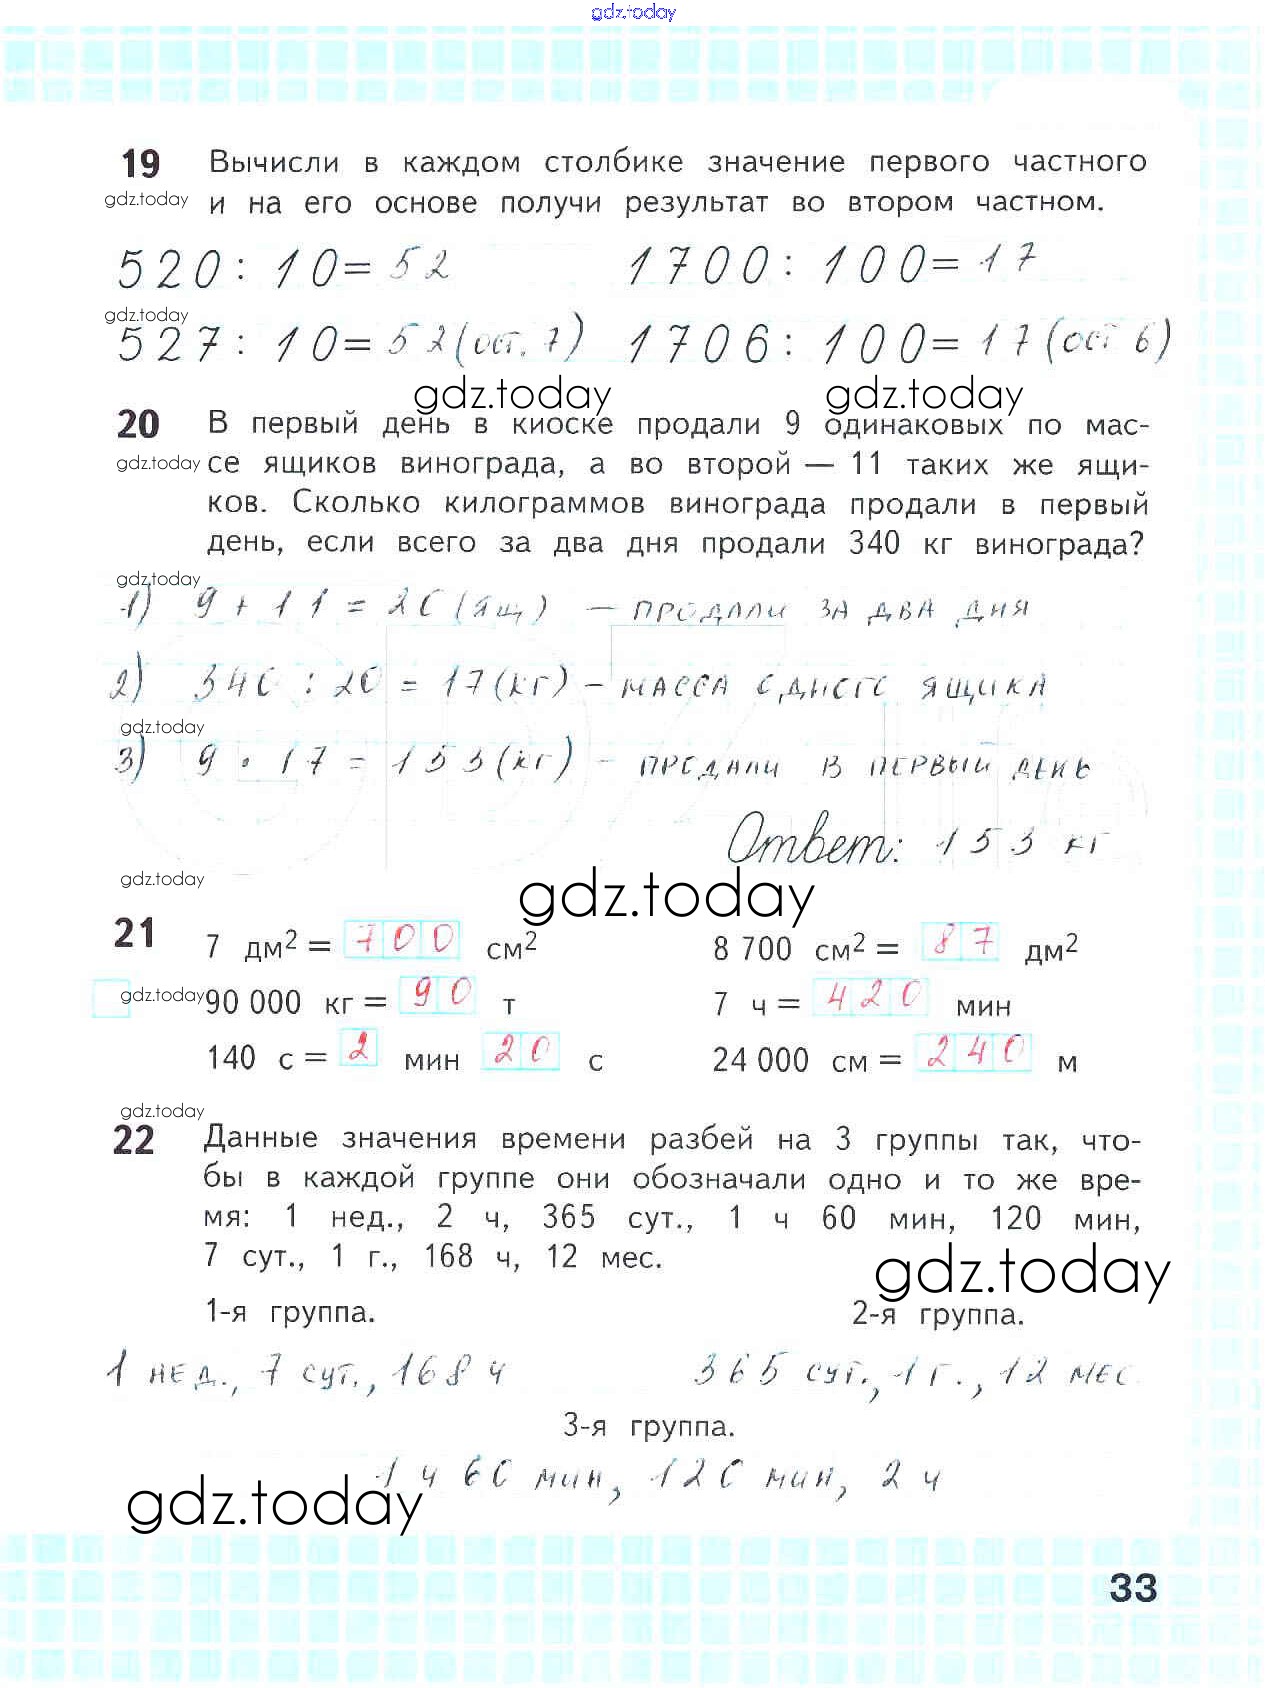 gdz.today
19 Вычисли в каждом столбике значение первого частного
gdz.today и на его основе получи результат во втором частном.
520 : 10 = 52 1700 : 100 = 17
gdz.today
527 : 10 = 52 (ост. 7) 1706 : 100 = 17 (ост 6)
gdz.today gdz.today
20 В первый день в киоске продали 9 одинаковых по мас-
gdz.today се ящиков винограда, а во второй — 11 таких же ящи-
ков. Сколько килограммов винограда продали в первый
день, если всего за два дня продали 340 кг винограда?
gdz.today
1) 9 + 11 = 20 (ящ) – продали за два дня
2) 340 : 20 = 17 (кг) – масса одного ящика
gdz.today
3) 9 · 17 = 153 (кг) – продали в первый день
Ответ: 153 кг
gdz.today gdz.today
21 7 дм² = 700 см² 8 700 см² = 87 дм²
gdz.today 90 000 кг = 90 т 7 ч = 420 мин
140 с = 2 мин 20 с 24 000 см = 240 м
gdz.today
22 Данные значения времени разбей на 3 группы так, что-
бы в каждой группе они обозначали одно и то же вре-
мя: 1 нед., 2 ч, 365 сут., 1 ч 60 мин, 120 мин,
7 сут., 1 г., 168 ч, 12 мес.
gdz.today
1-я группа. 2-я группа.
1 нед., 7 сут., 168 ч 365 сут., 1 г., 12 мес
3-я группа.
1 ч 60 мин, 120 мин, 2 ч
gdz.today
33